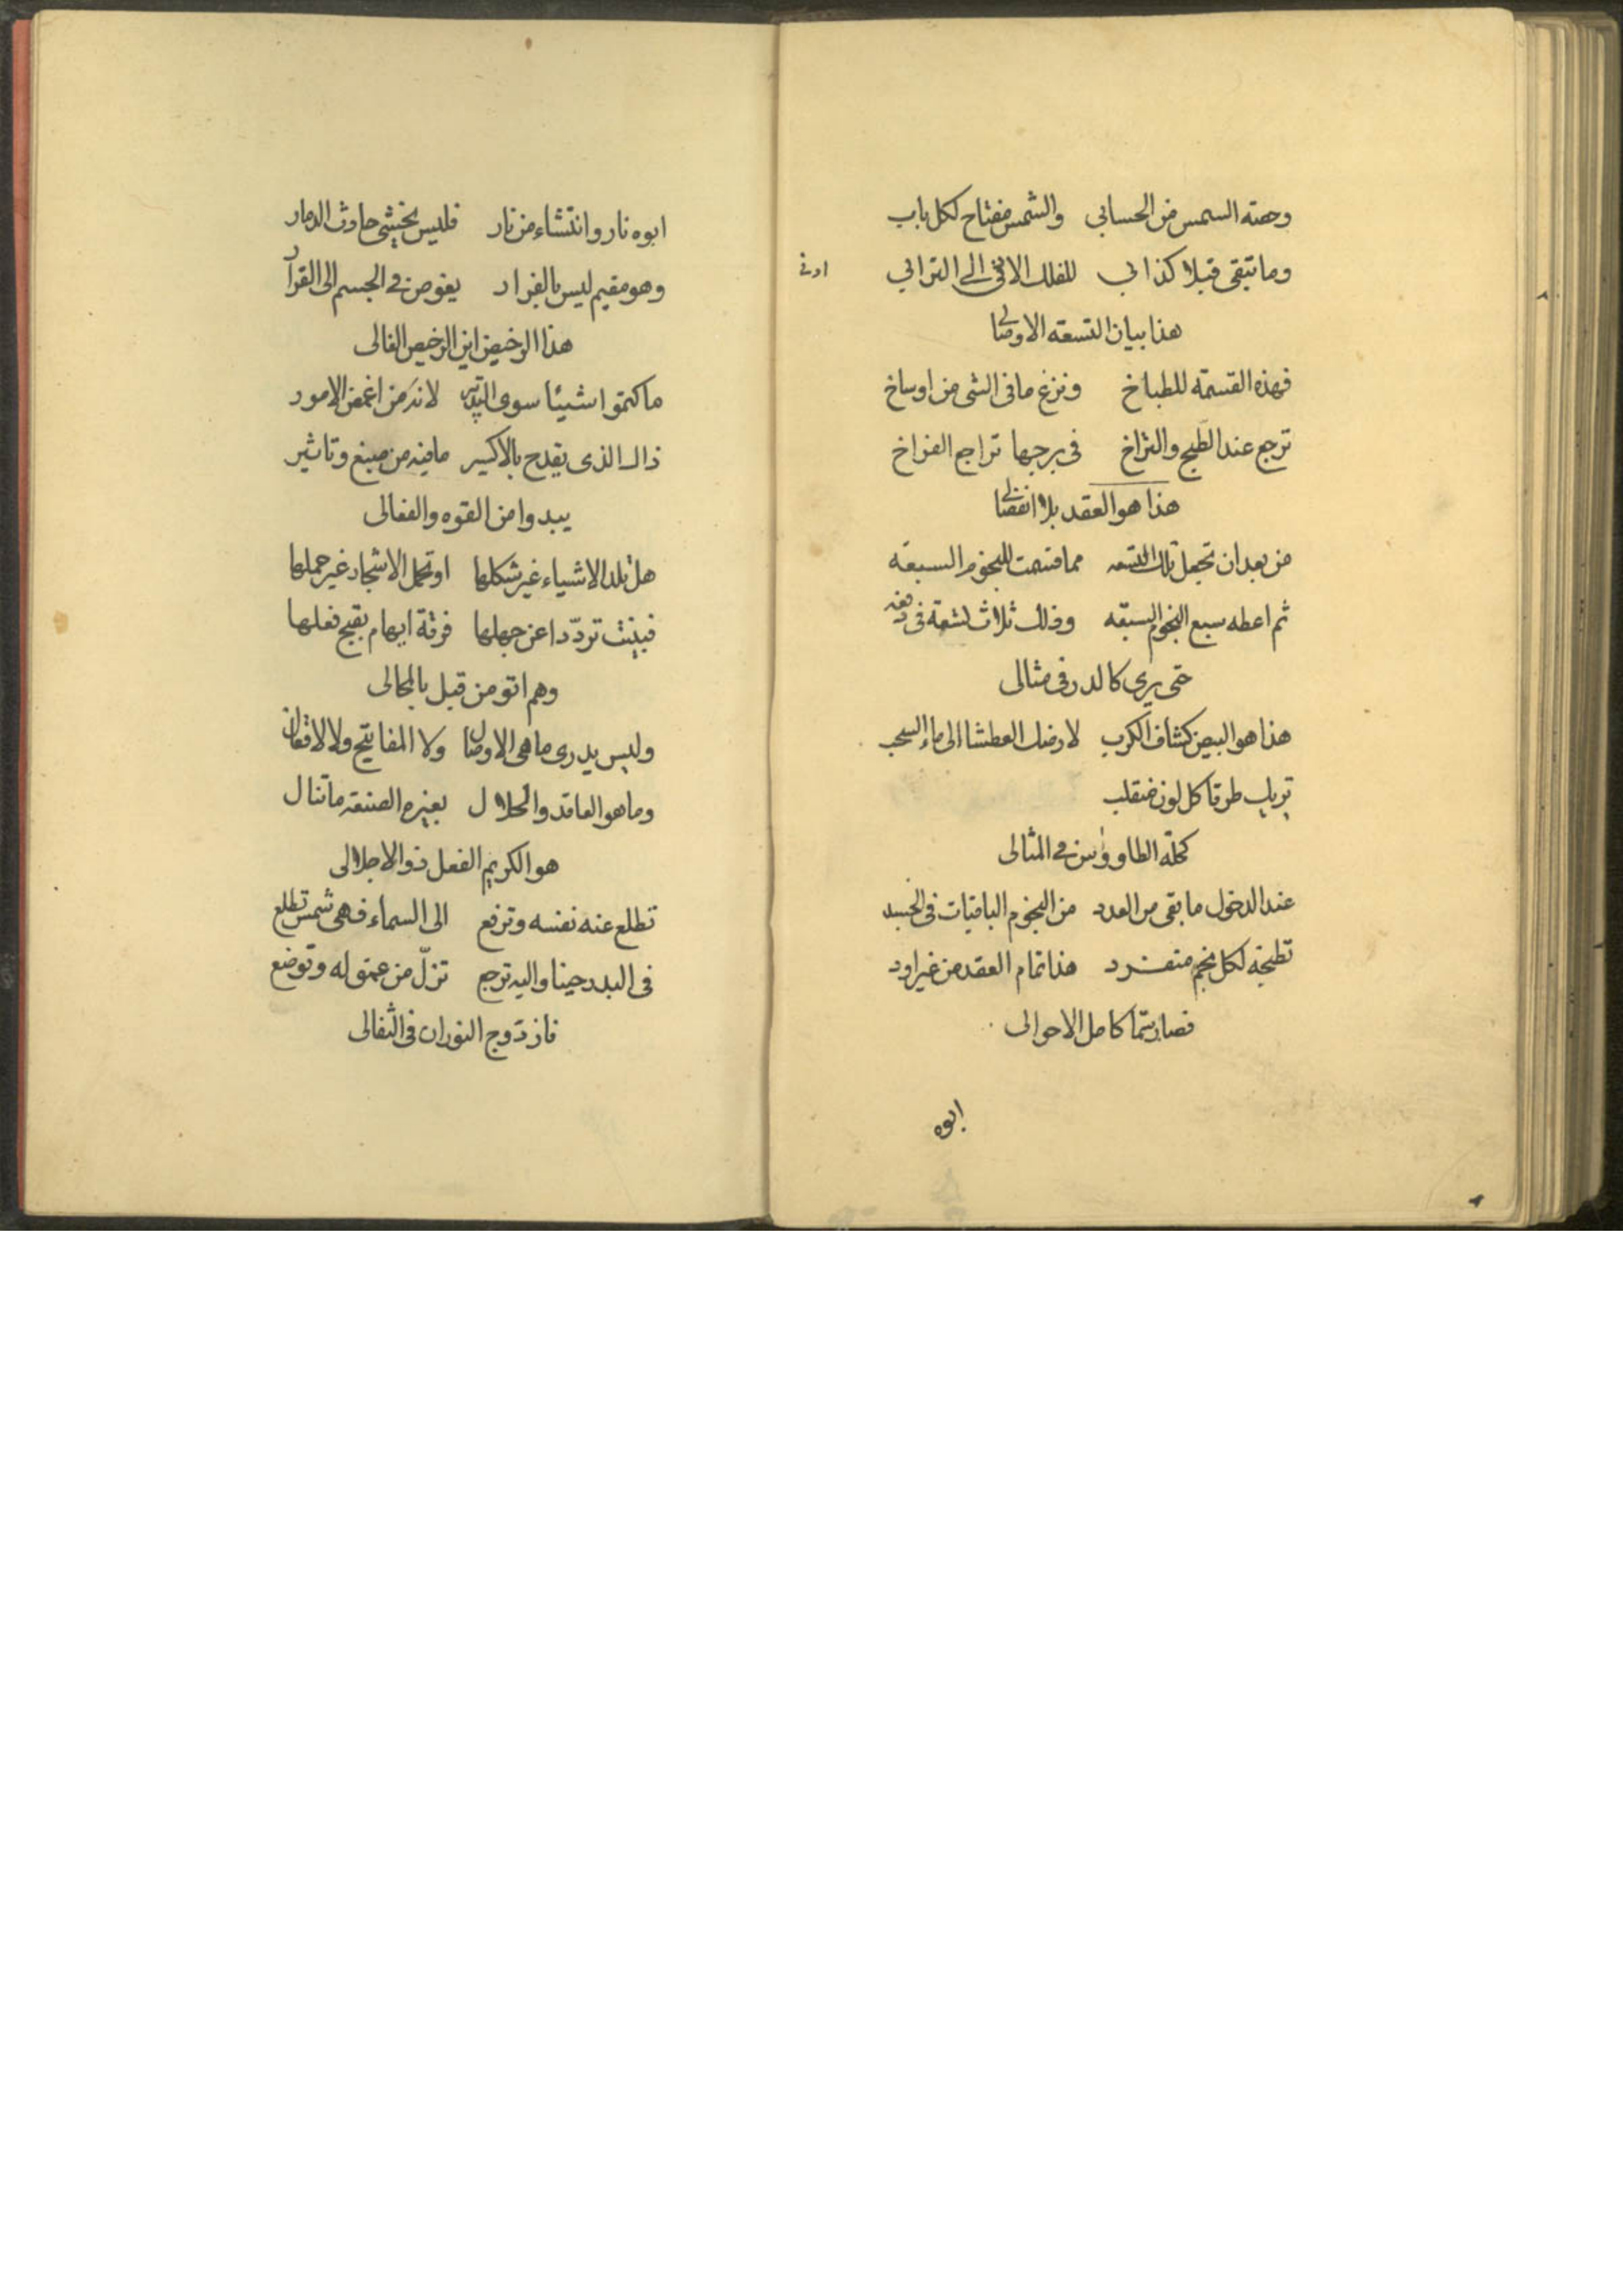 وحصته السمس من الحسابى والشمس مفتاح لكل باب
وما تبقى قبلا كذابى للفلك الادنى الى الترابى
ادنى
هذا بيان التسعه الاوصالى
فهذه القسمة للطباخ ونزع مافى الشى من اوساخ
ترجع عند الطبخ والتراخ فى برجها تراجع الفراخ
هذا هو العقد بلا انفصالى
من بعد ان تجعل تلك التسعه مما قسمت للنجوم السبعه
ثم اعطه سبع النجوم السبعه وذلك ثلاث لتسعة فى دفعه
حتى يرى كالدر فى مثالى
هذا هو البيض كشاف الكرب لارضك العطشا الى ماء السحب
تريك طرقا كل لون منقلب
كحلة الطاووس فى المثالى
عند الدخول ما بقى من العدد من النجوم الباقيات فى الجسد
تطبخه لكل نجم منفرد هذا تمام العقد من غير اود
فصار سما كامل الاحوالى
ابوه
ابوه نار وانتشاء من نار فليس يخشى حادث الدمار
وهو مقيم ليس بالفرار يغوص فى الجسم الى القرار
هذا الرخيص ابن الرخيص الغالى
ما كتموا شيئا سوى التدبير لانه من اغمض الامور
ذاك الذى يقدح بالاكسير مافيه من صبغ وتاثير
يبدوا من القوه والفعالى
هل تلد الاشياء غير شكلها او تحمل الاشجار غير حملها
فبينت تردّدا عن جهلها فرقة ابهام بقبح فعلها
وهم اتو من قبل بالمحالى
وليس يدرى ماهى الاوصال ولا المفاتيح ولا الاقفال
وما هو العاقد والحلال بغيره الصنعة ماتنال
هو الكريم الفعل ذو الاجلالى
تطلع عنه نفسه وترفع الى السماء فهى شمس تطلع
فى البدر حينا واليه ترجع تزلّ من عمق له وتوضع
فازدوج النوران فى الثفالى